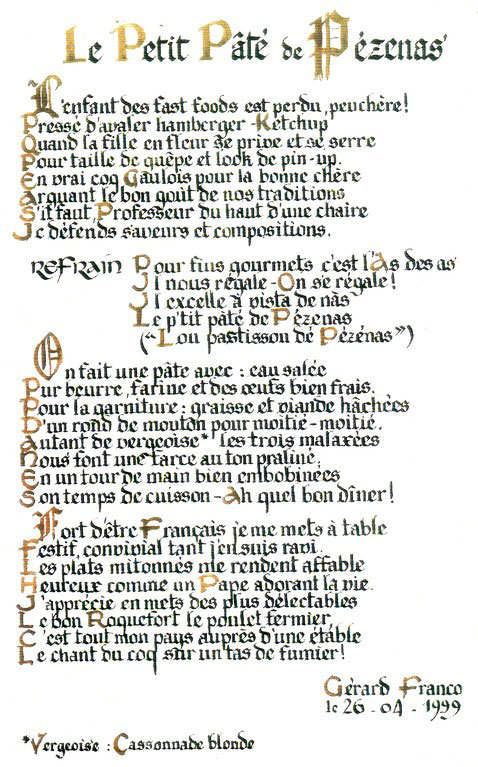 Le Petit Pâté de Pézenas
L'enfant des fast foods est perdu, peuchère!
Pressé d'avaler hamberger-Ketchup
Quand la fille en fleur se prive et se serre
Pour taille de guêpe et look de pin-up.
En vrai coq Gaulois pour la bonne chère
Arguant le bon goût de nos traditions
S'il faut, Professeur du haut d'une chaire
Je défends saveurs et compositions.
REFRAIN Pour fins gourmets c'est l'As des as
Il nous régale - On se régale!
Il excelle à vista de nas
Le p'tit pâté de Pézenas
("Lou pastissou dé Pézénas")
On fait une pâte avec : eau salée
Pur beurre, farine et des œufs bien frais.
Pour la garniture : graisse et viande hâchées
D'un rond de mouton pour moitié-moitié.
Autant de vergeoise* les trois malaxées
Nous font une farce au ton praliné.
En un tour de main bien embobinées
Son temps de cuisson - Ah quel bon dîner!
Fort d'être Français je me mets à table
Festif, convivial tant j'en suis ravi.
Les plats mitonnés me rendent affable
Heureux comme un Pape adorant la vie.
J'apprécie en mets des plus délectables
Le bon Roquefort le poulet fermier,
C'est tout mon pays auprès d'une étable
Le chant du coq sur un tas de fumier!
Gérard Franco
le 26-04-1999
*Vergeoise : Cassonnade blonde